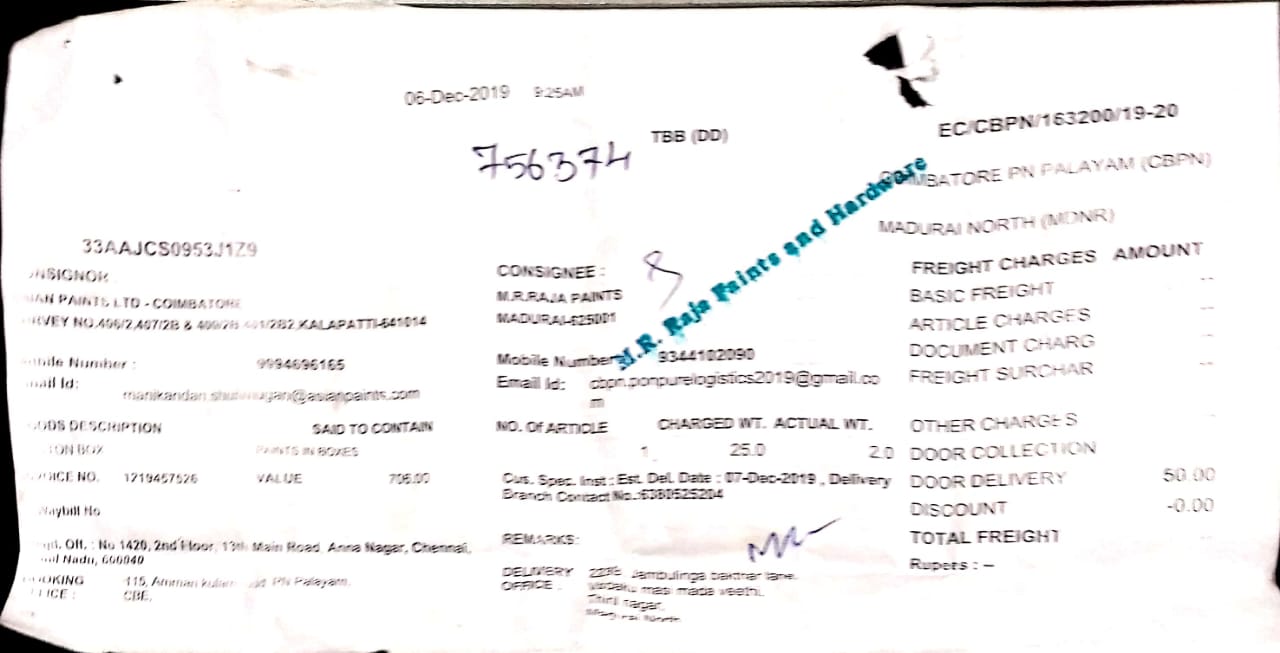 06-Dec-2019 9:25AM
TBB (DD)
EC/CBPN/163200/19-20
756374
COIMBATORE PN PALAYAM (CBPN)
MADURAI NORTH (MDNR)
M.R. Raja Paints and Hardware
33AAJCS0953J1Z9
ONSIGNOR
IAN PAINTS LTD - COIMBATORE
RVEY NO.406/2,407/2B & KALAPATTI-641014
Number : 9994696165
mail Id:
@asianpaints.com
CONSIGNEE :
M.R.RAJA PAINTS
MADURAI-625001
Mobile Number 9344102090
Email Id: cbpn.ponpurelogistics2019@gmail.co
m
FREIGHT CHARGES AMOUNT
BASIC FREIGHT --
ARTICLE CHARGES --
DOCUMENT CHARG --
FREIGHT SURCHAR --
OTHER CHARGES --
DOOR COLLECTION
DOOR DELIVERY 50.00
DISCOUNT -0.00
TOTAL FREIGHT
Rupees : --
OODS DESCRIPTION SAID TO CONTAIN
TON BOX PAINTS IN BOXES
NO. OF ARTICLE CHARGED WT. ACTUAL WT.
1 25.0 2.0
VOICE NO. 1219457526 VALUE 706.00
Waybill No
Cus. Spec. Inst : Est. Del. Date : 07-Dec-2019 , Delivery
Branch Contact No.:6380525204
Off. : No 1420, 2nd Floor, 13th Main Road, Anna Nagar, Chennai,
Nadu, 600040
OOKING 115, Amman kulam PN Palayam,
FICE : CBE,
REMARKS:
DELIVERY
OFFICE :
Jambulinga lane,
masi mada veethi,
nagar,
North